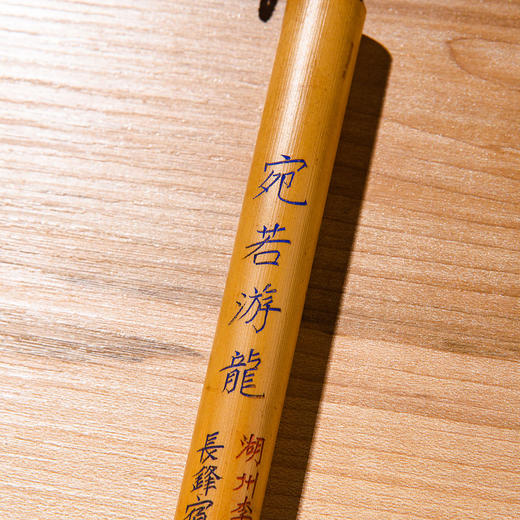 宛若游龍
湖州李
長鋒宿